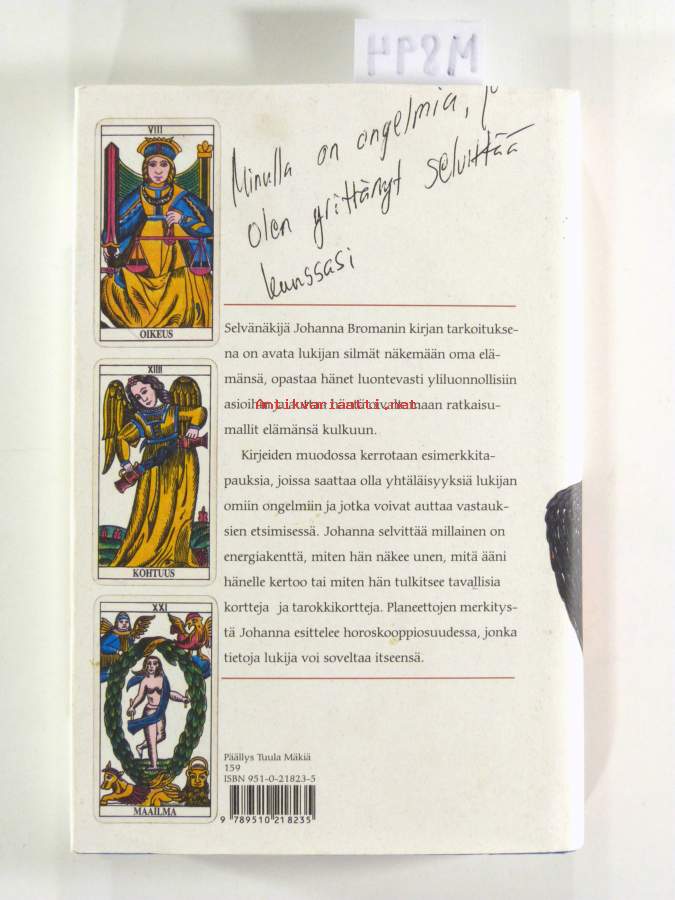 M814
VIII
OIKEUS
XIIII
KOHTUUS
XXI
MAAILMA
Minulla on ongelmia,
olen yrittänyt selvittää
kanssasi
Selvänäkijä Johanna Bromanin kirjan tarkoitukse-
na on avata lukijan silmät näkemään oma elä-
mänsä, opastaa hänet luontevasti yliluonnollisiin
asioihin
Antikvariaatti.net
ratkaisu-
mallit elämänsä kulkuun.
Kirjeiden muodossa kerrotaan esimerkkita-
pauksia, joissa saattaa olla yhtäläisyyksiä lukijan
omiin ongelmiin ja jotka voivat auttaa vastauk-
sien etsimisessä. Johanna selvittää millainen on
energiakenttä, miten hän näkee unen, mitä ääni
hänelle kertoo tai miten hän tulkitsee tavallisia
kortteja ja tarokkikortteja. Planeettojen merkitys-
tä Johanna esittelee horoskooppiosuudessa, jonka
tietoja lukija voi soveltaa itseensä.
Päällys Tuula Mäkiä
159
ISBN 951-0-21823-5
9 789510 218235